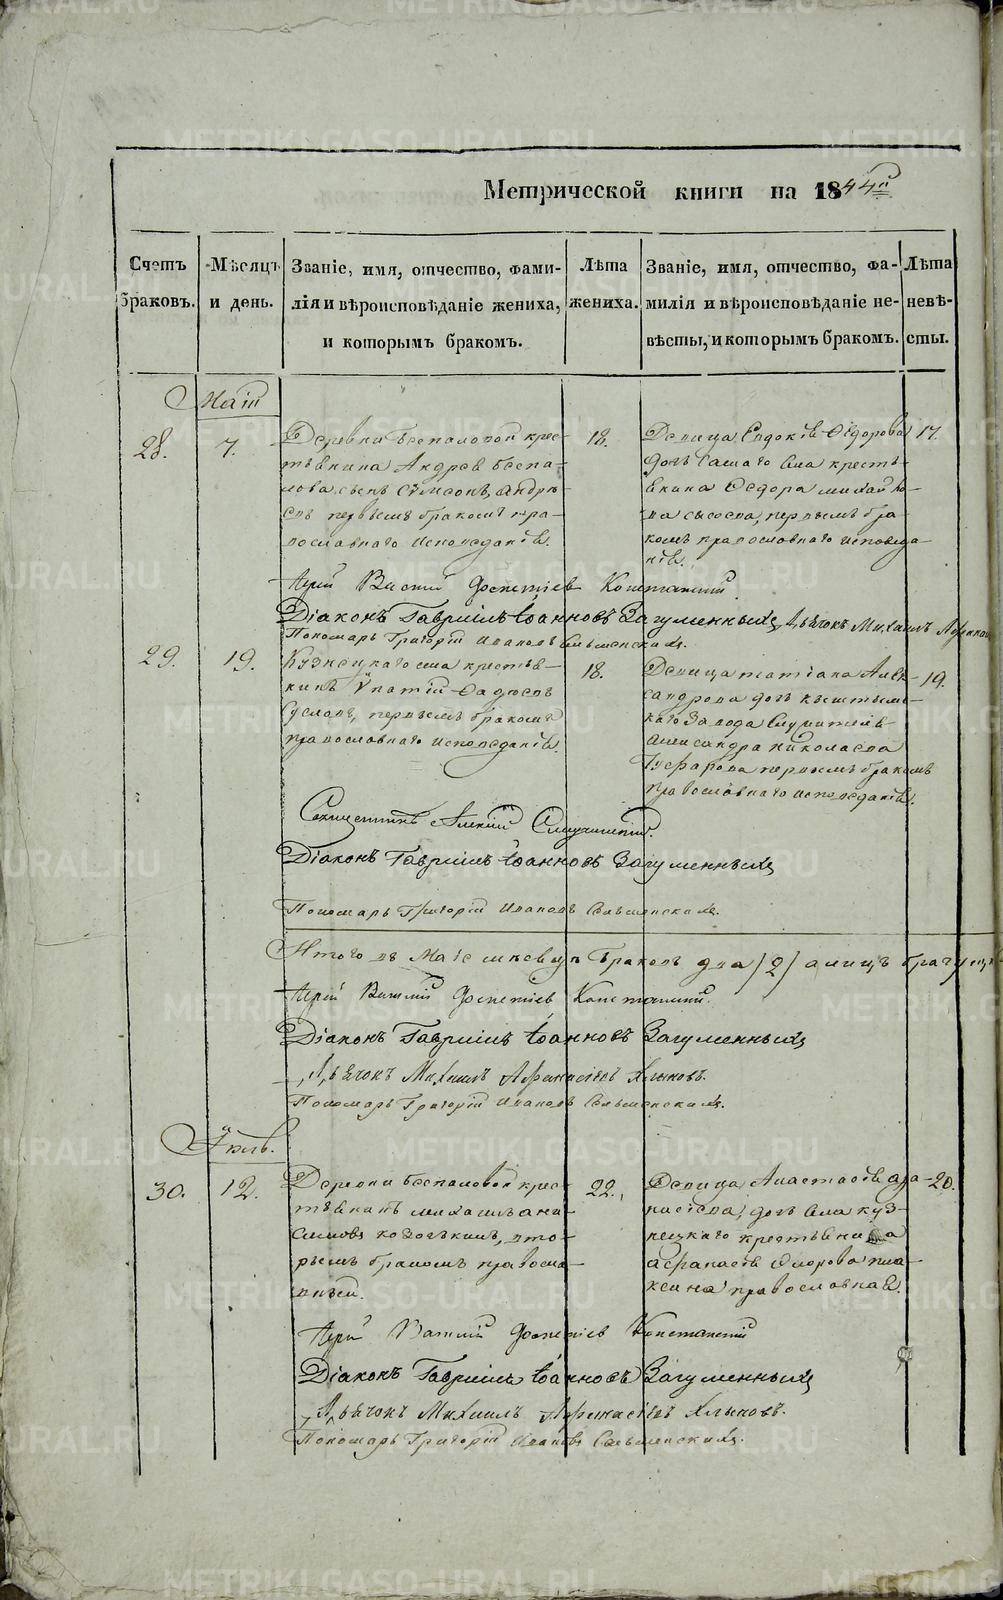 Метрической книги на 1844й
Счетъ браковъ.
Мѣсяцъ и день.
Званіе, имя, отчество, фами-
лія и вѣроисповѣданіе жениха,
и которымъ бракомъ.
Лѣта
жениха.
Званіе, имя, отчество, фа-
милія и вѣроисповѣданіе не-
вѣсты, и которымъ бракомъ.
Лѣта
невѣ-
сты.
Маія
28.
7.
Деревни Беспаловой крес-
тьянина Андрея Беспа-
лова сынъ Симеонъ Андре-
евъ первымъ бракомъ пра-
вославнаго исповеданія.
18.
Девица Евдокія Федорова
дочь самаго села кресть-
янина Федора Михайло-
ва Сысоева, первымъ бра-
комъ православнаго исповеда-
нія.
17.
Іерей Василій Константинъ
Діаконъ Гавріилъ Іоанновъ Загуменныхъ Дьячокъ Михаилъ
Пономарь Григорій Ивановъ
29.
19.
Кузнецкаго села кресть-
янинъ Ипатій Фадеевъ
Сусловъ, первымъ бракомъ
православнаго исповеданія.
18.
Девица Татіана Алек-
сандрова дочь Кыштым-
скаго завода служителя
Александра Николаева
первымъ бракомъ
православнаго исповеданія.
19.
Священникъ Алексій
Діаконъ Гавріилъ Іоанновъ Загуменныхъ
Пономарь Григорій Ивановъ
Итого въ Маіе месяце браковъ два /2/ а лицъ
Іерей Василій
Діаконъ Гавріилъ Іоанновъ Загуменныхъ
Дьячокъ Михаилъ Афанасіевъ Хлыновъ.
Пономарь Григорій Ивановъ
Іюль.
30.
12.
Деревни Беспаловой крес-
тьянинъ Михаилъ Ани-
симовъ вто-
рымъ бракомъ правосла-
вный.
22.
Девица Анастасія Афа-
насіева, дочь села Куз-
нецкаго крестьянина
Афанасія
православная.
20.
Іерей Василій
Діаконъ Гавріилъ Іоанновъ Загуменныхъ
Дьячокъ Михаилъ Афанасіевъ Хлыновъ.
Пономарь Григорій Ивановъ
METRIKI.GASO-URAL.RU